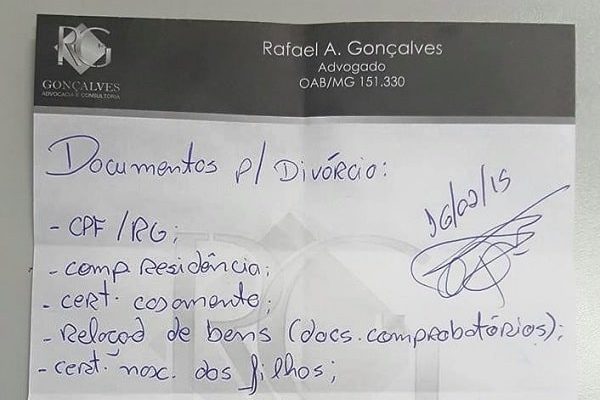 RG
GONÇALVES
ADVOCACIA E CONSULTORIA
Rafael A. Gonçalves
Advogado
OAB/MG 151.330
Documentos p/ Divórcio:
16/02/15
- CPF/RG;
- comp. Residência;
- cert. casamento;
- Relação de bens (docs. comprobatórios);
- cert. nasc. dos filhos;